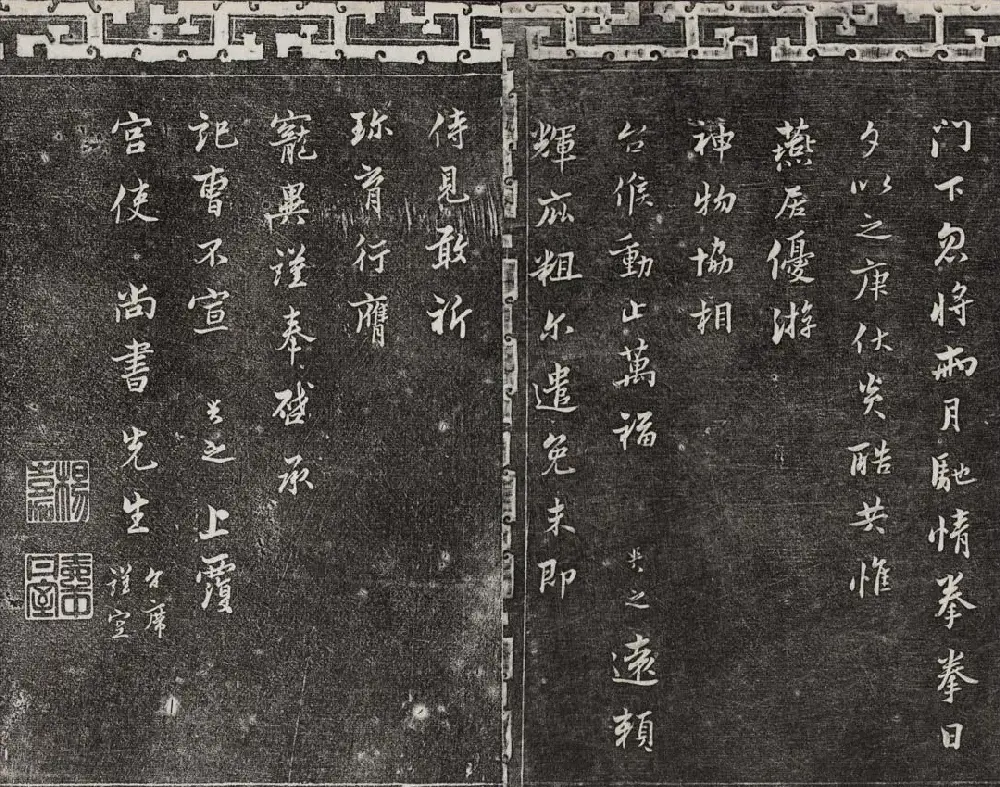 门下忽将兩月馳情拳拳日
夕以之庚伏炎酷共惟
燕居優游
神物協相
台候動止萬福 光之遠賴
輝庇粗尔遣免未即
侍見敢祈
珎嗇行膺
寵異謹奉啓承
記曹不宣 光之上覆
宫使尚書先生
台席
謹空